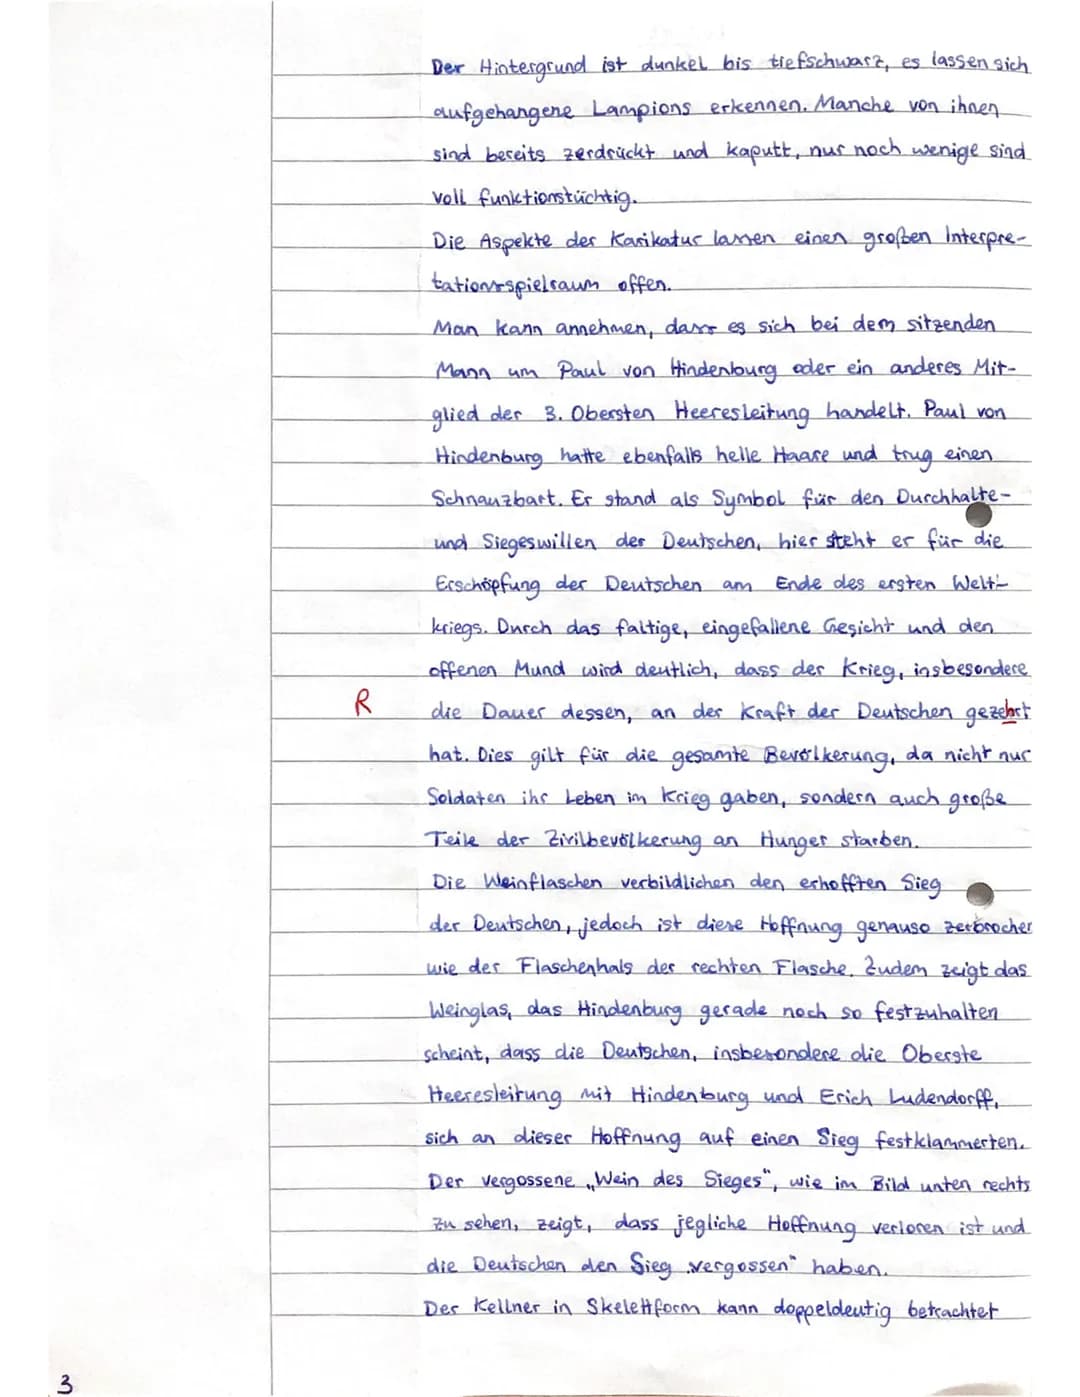 Der Hintergrund ist dunkel bis tiefschwarz, es lassen sich
aufgehangene Lampions erkennen. Manche von ihnen
sind bereits zerdrückt und kaputt, nur noch wenige sind
voll funktionstüchtig.
Die Aspekte der Karikatur lassen einen großen Interpre-
tationsspielraum offen.
Man kann annehmen, dass es sich bei dem sitzenden
Mann um Paul von Hindenburg oder ein anderes Mit-
glied der 3. Obersten Heeresleitung handelt. Paul von
Hindenburg hatte ebenfalls helle Haare und trug einen
Schnauzbart. Er stand als Symbol für den Durchhalte-
und Siegeswillen der Deutschen, hier steht er für die
Erschöpfung der Deutschen am Ende des ersten Welt-
kriegs. Durch das faltige, eingefallene Gesicht und den
offenen Mund wird deutlich, dass der Krieg, insbesondere
R die Dauer dessen, an der Kraft der Deutschen gezehrt
hat. Dies gilt für die gesamte Bevölkerung, da nicht nur
Soldaten ihr Leben im Krieg gaben, sondern auch große
Teile der Zivilbevölkerung an Hunger starben.
Die Weinflaschen verbildlichen den erhofften Sieg
der Deutschen, jedoch ist diese Hoffnung genauso zerbrochen
wie der Flaschenhals der rechten Flasche. Zudem zeigt das
Weinglas, das Hindenburg gerade noch so festzuhalten
scheint, dass die Deutschen, insbesondere die Oberste
Heeresleitung mit Hindenburg und Erich Ludendorff,
sich an dieser Hoffnung auf einen Sieg festklammerten.
Der vergossene „Wein des Sieges", wie im Bild unten rechts
zu sehen, zeigt, dass jegliche Hoffnung verloren ist und
die Deutschen den Sieg „vergossen" haben.
Der Kellner in Skelettform kann doppeldeutig betrachtet
3